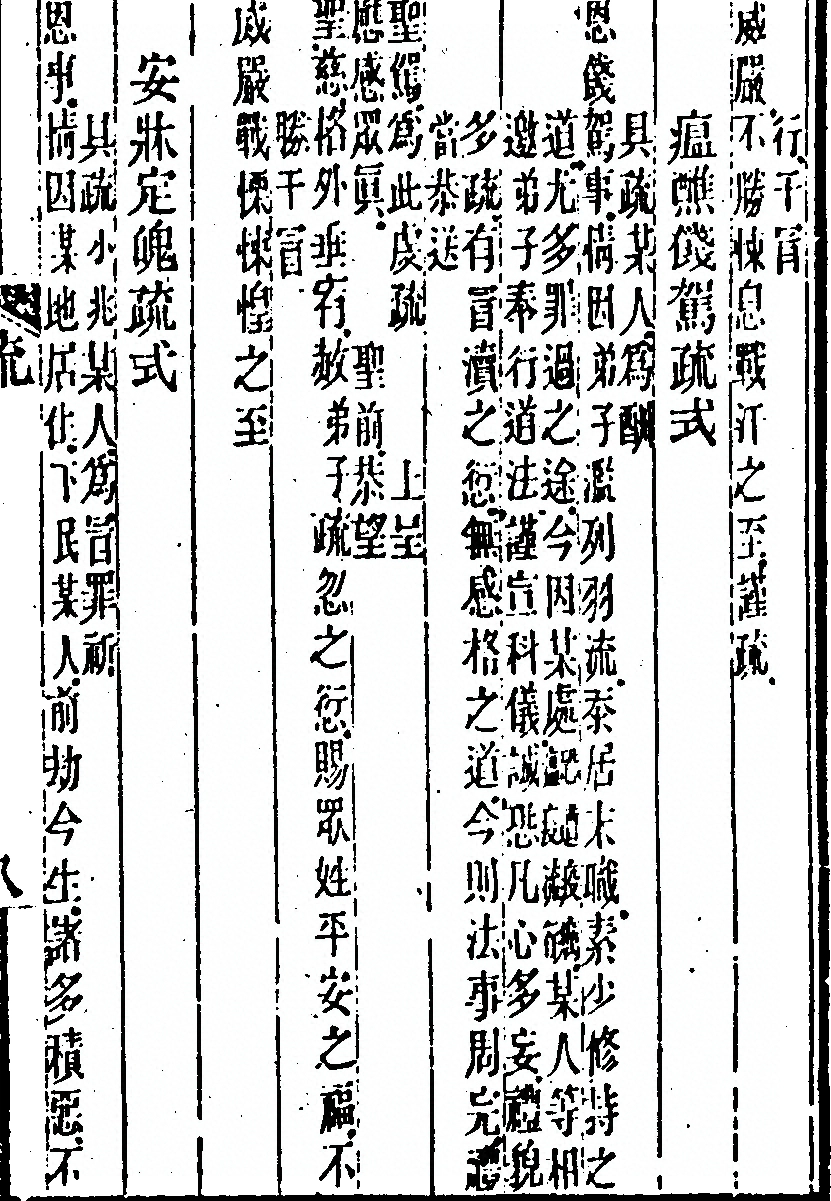 行干冒
威嚴不勝悚息戰汗之至謹疏
瘟醮餞駕疏式
具疏某人為酬
恩餞駕事情因弟子濫列羽流忝居末職素少修持之
道尤多罪過之途今因某處某人等相
邀弟子奉行道法謹宣科儀誠恐凡心多妄禮貌
多疏有冒瀆之愆無感格之道今則法事周完禮
當恭送
聖駕為此虔疏 上呈
應感眾真 聖前恭望
聖慈格外垂宥赦弟子疏忽之愆賜眾姓平安之福不
勝干冒
威嚴戰慄悚惶之至
安牀定魄疏式
具疏小兆某人為首罪祈
恩事情因某地居住下民某人前劫今生諸多積惡不